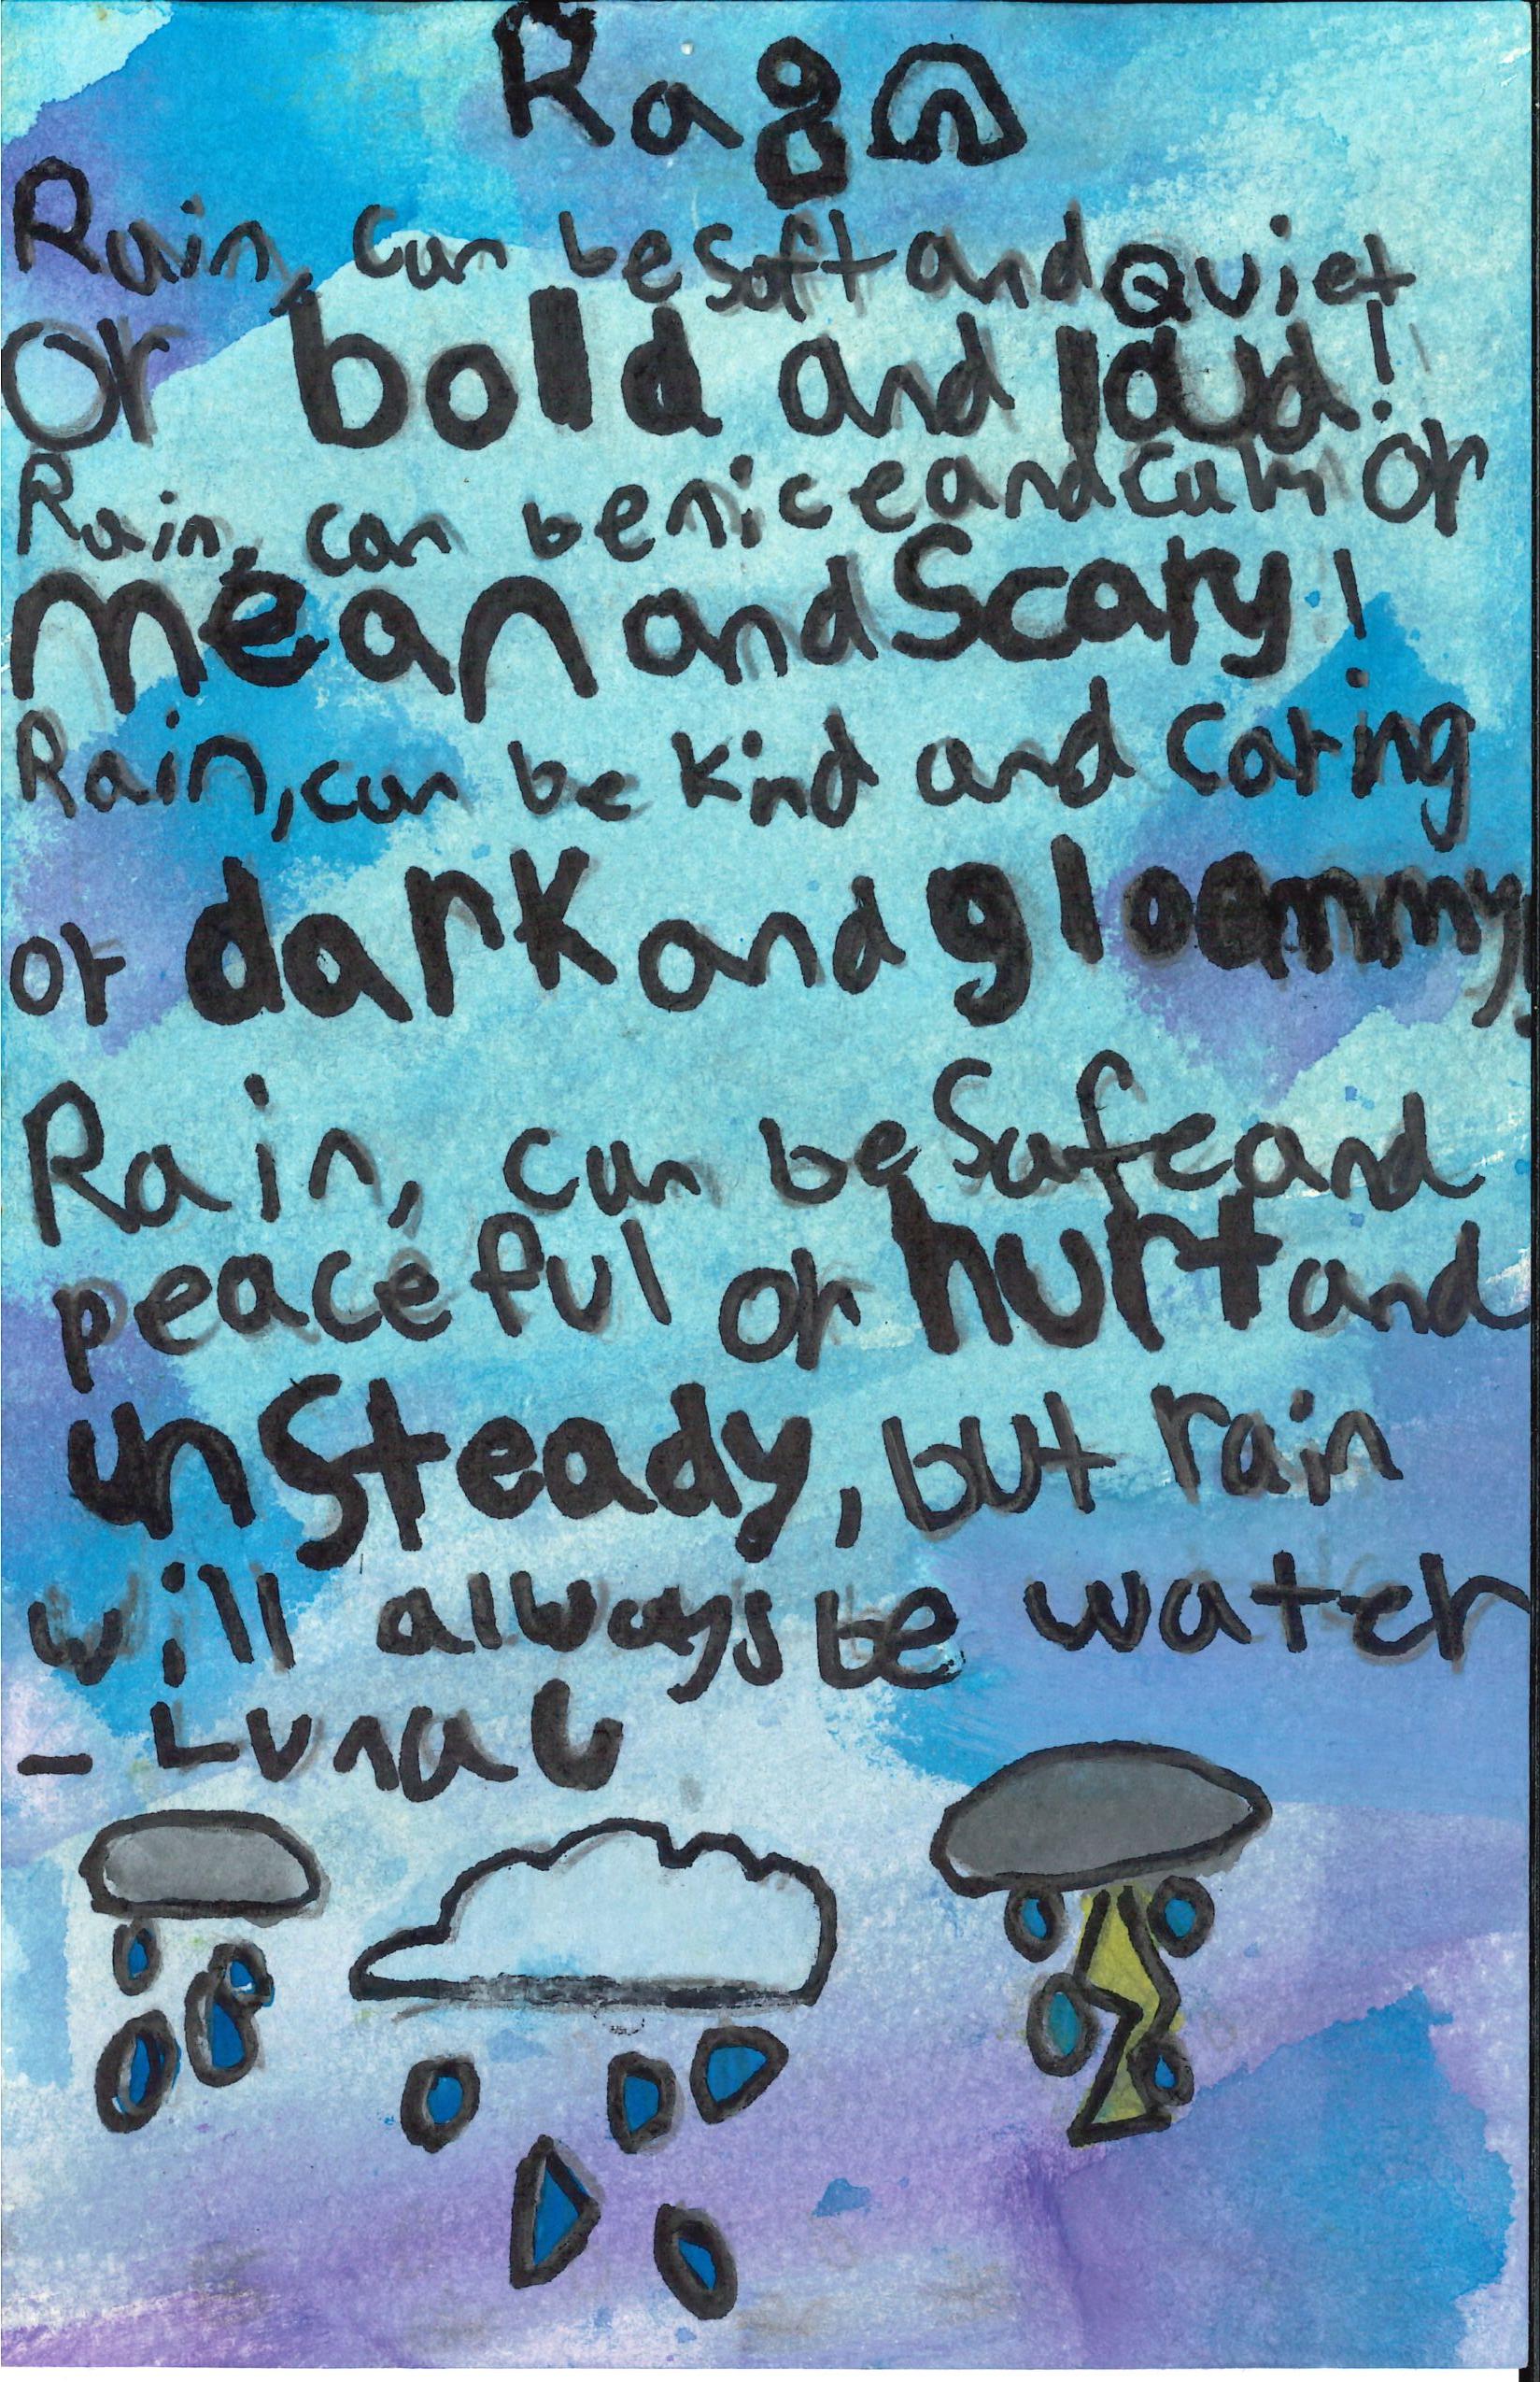 Rain
Rain, can be soft and Quiet
Or bold and loud!
Rain, can be nice and calm or
mean and Scary!
Rain, can be kind and caring
or dark and gloommy!
Rain, can be Safe and
peaceful or hurt and
unSteady, but rain
will always be water
- Luna U